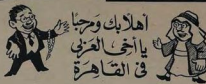 أهلا بك ومرحبا
يا أخى العربى
فى القاهرة